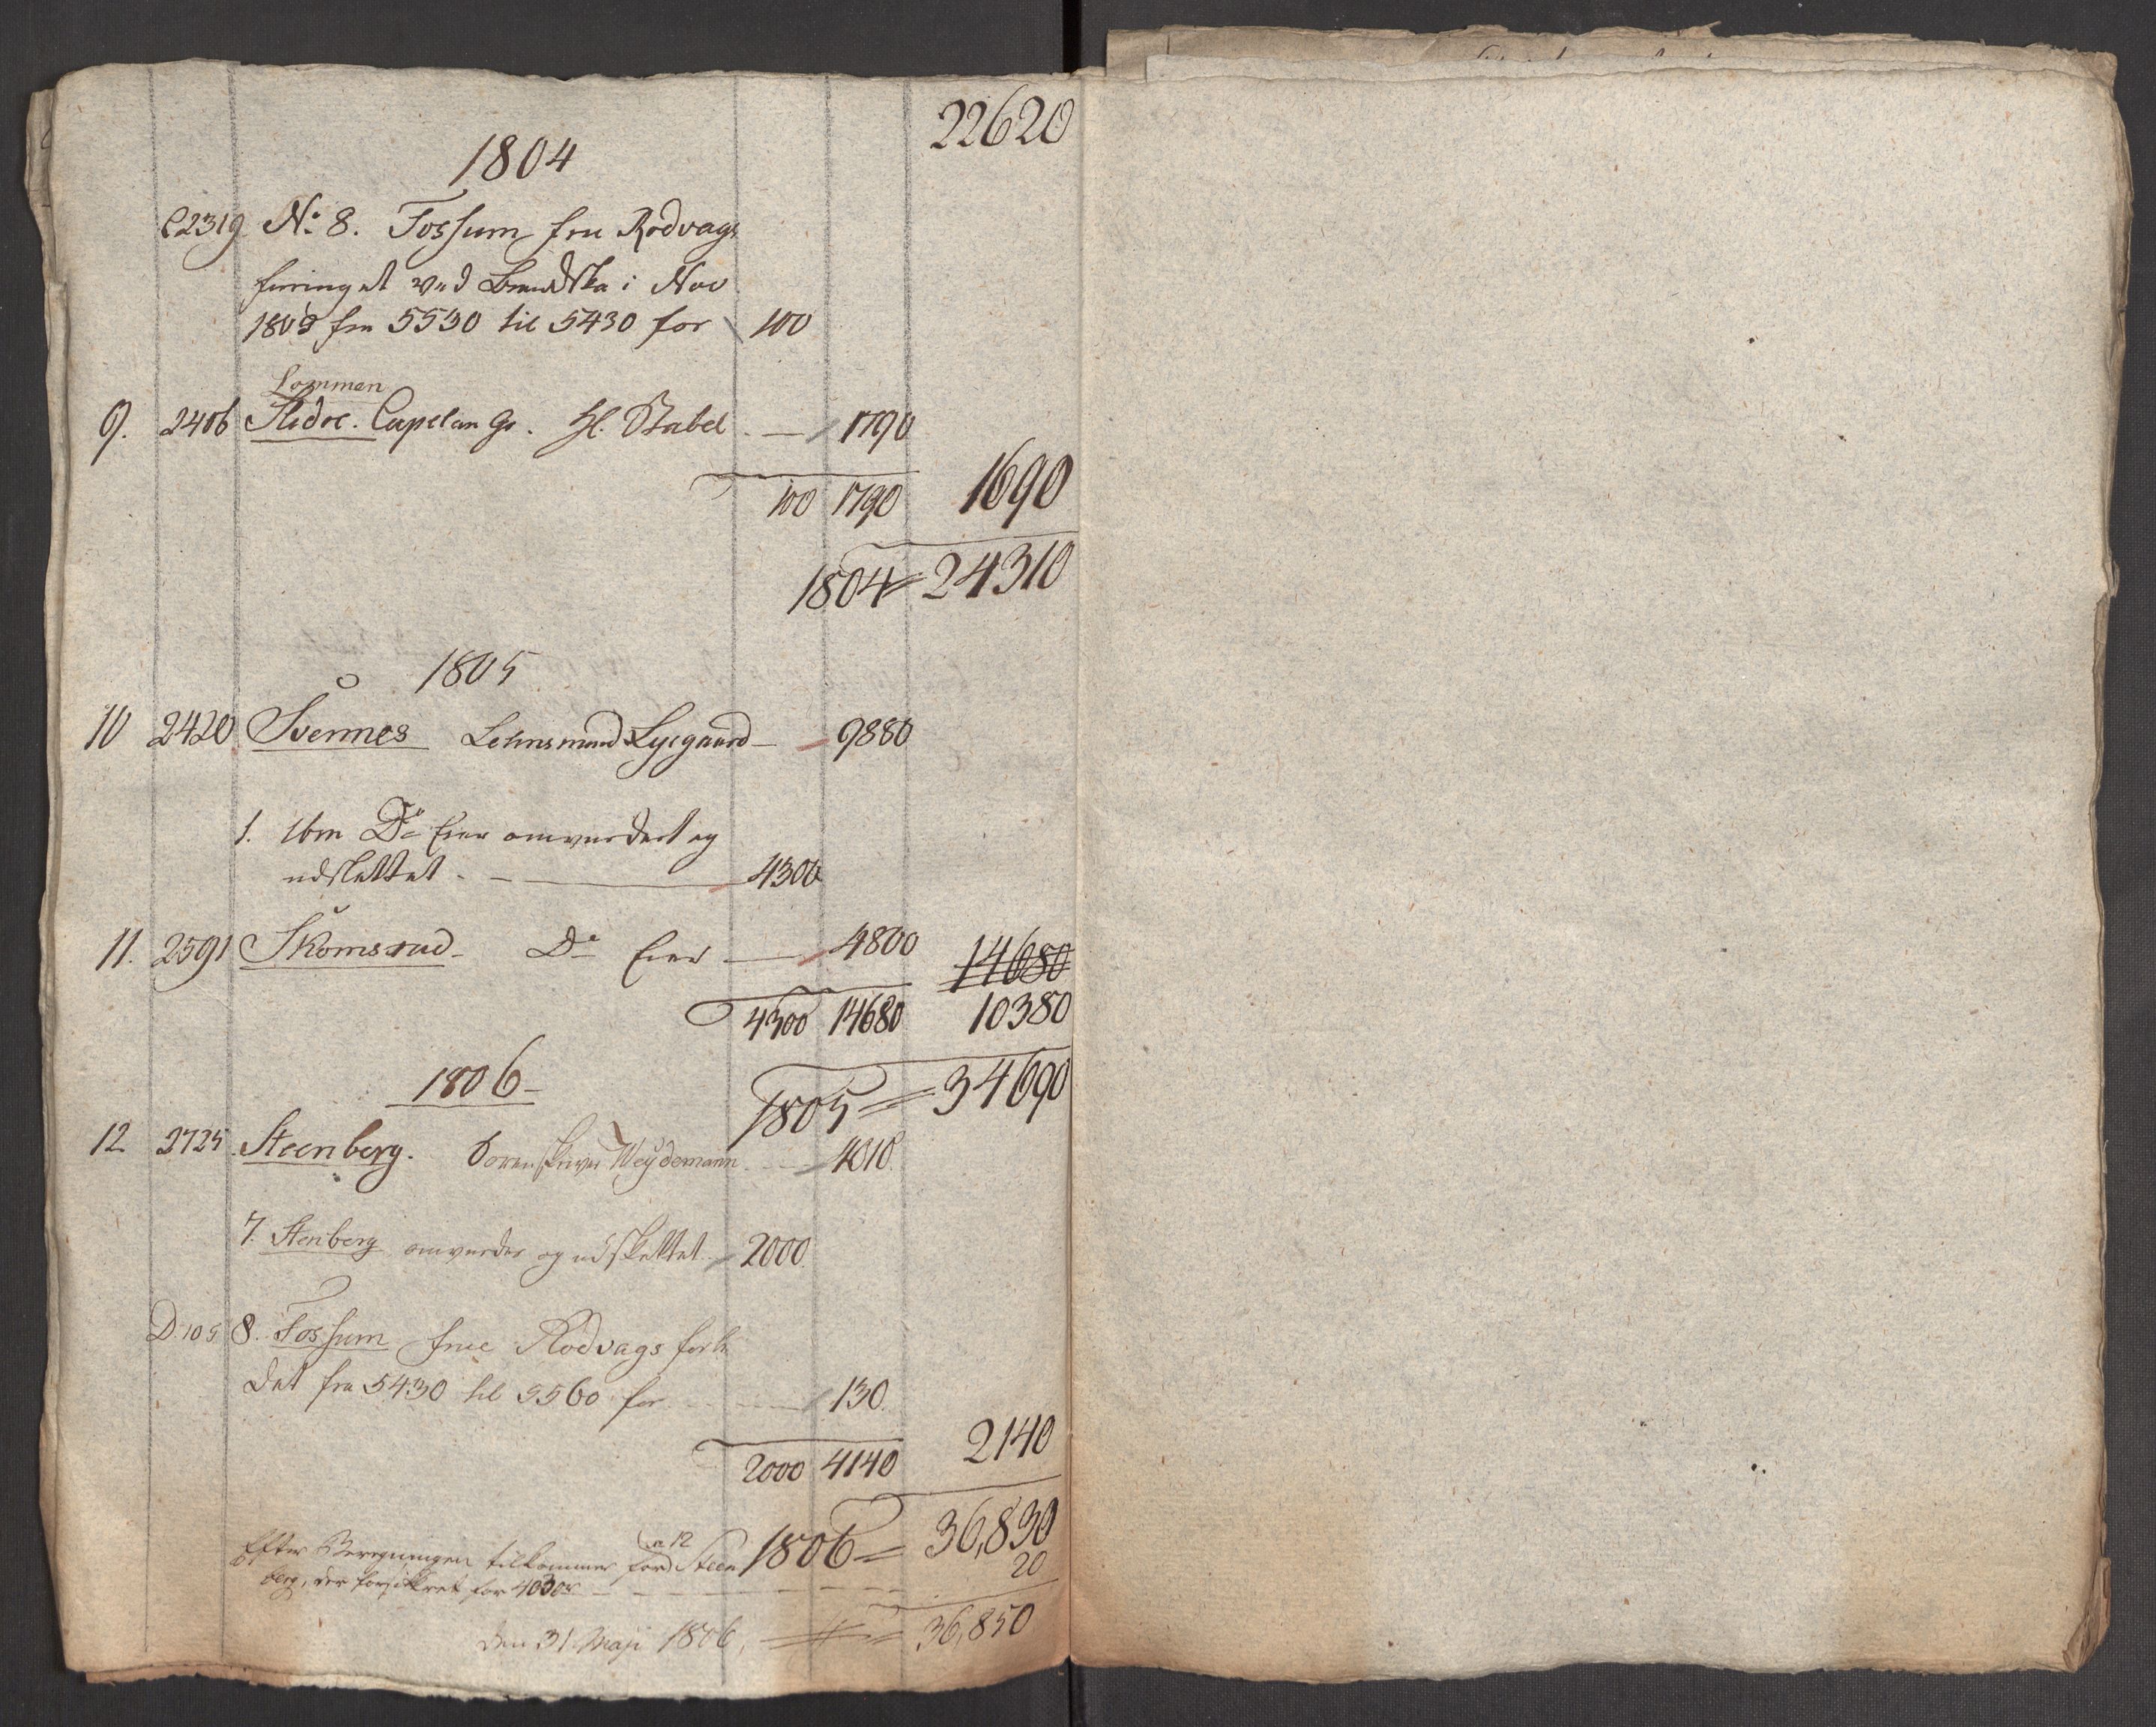 22620
1804
C2319 No 8. Fossum fru Rodvags
furinget ved Brandska i Nov
1803 fra 5530 til 5430 for 100
Lommen
9. 2406 Slidre. Capelan Gr. Hl. Stabel - 1790
100 1790 1690
1804 = 24310
1805
10 2420 Svennes Lehnsmand Lysgaard - 9880
1. Do Eier omvurdert og
udslettet - 4300
11. 2591 Skomsrud - Do Eier - 4800 14680
4300 14680 10380
1805 = 34690
1806 -
12 2725 Steenberg. Sorenskriver Weydemann - 4010
7. Stenberg omvurder og udslettet 2000
D. 105 8. Fossum frue Rodvags forh
det fra 5430 til 5560 for 130
2000 4140 2140
1806 = 36,830
Efter Beregningen tilkommer for No 12 Steen
berg, der forsikkret for 4030 - 20
den 31 Maji 1806, = 36,850